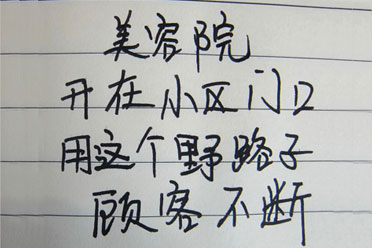 美容院
开在小区门口
用这个野路子
顾客不断